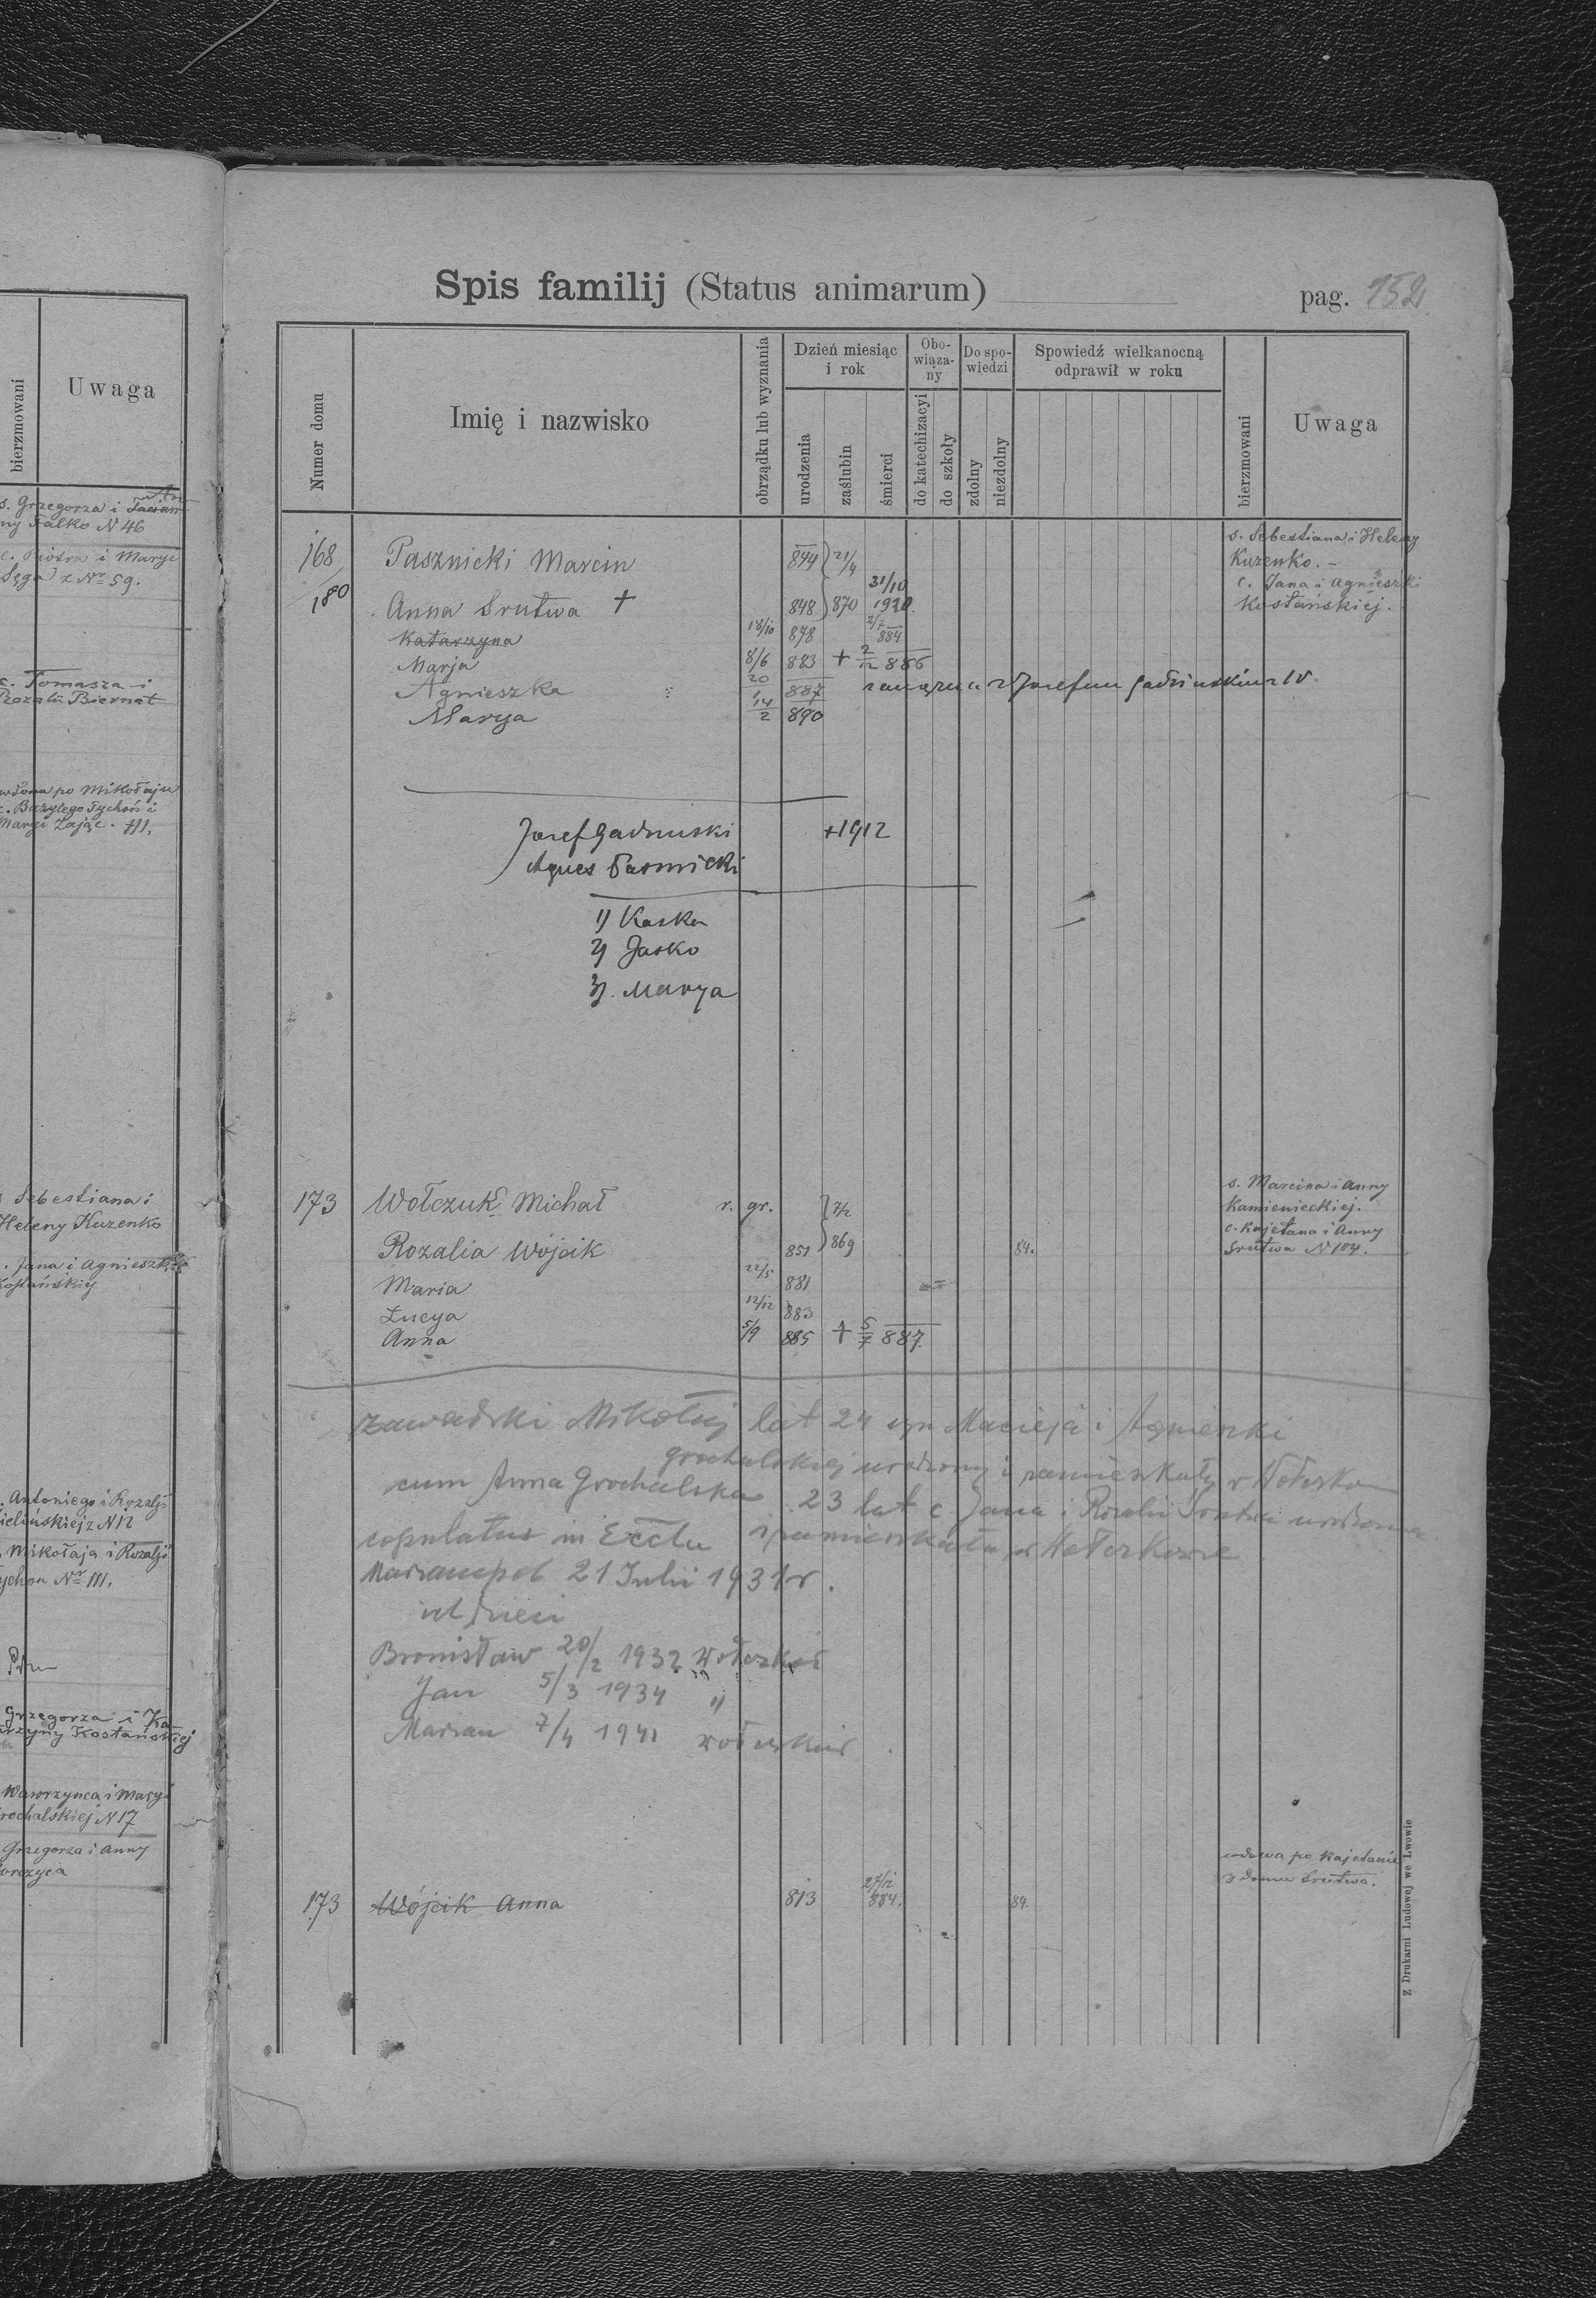 bierzmowani
Uwaga
s. Grzegorza i
ny Falko N 46
c. Piotra i Maryi
Sęga z № 59.
c. Tomasza i
Rozalii Biernat
wdowa po Mikołaju
c. Bazylego Tychoń i
Maryi Zając. 111.
s Sebestiana i
Heleny Kuzenko
c. Jana i Agnieszki
Kostańskiej
s. Antoniego i Rozalji
Zielińskiej z N 12
Mikołaja i Rozalji
Tychon Nr 111.
Grzegorza i Ka-
tarzyny Kostańskiej
Wawrzynca i Maryi
Grochalskiej N 17
Grzegorza i Anny
Spis familij (Status animarum)
pag. 152
Numer domu
Imię i nazwisko
obrządku lub wyznania
Dzień miesiąc i rok
urodzenia
zaślubin
śmierci
Obowiąza-ny
do katechizacyi
do szkoły
Do spo-wiedzi
zdolny
niezdolny
Spowiedź wielkanocną odprawił w roku
bierzmowani
Uwaga
168 Pasznicki Marcin 844 21/4 s. Sebestiana i Heleny Kuzenko. -
180 Anna Srutwa + 848 870 31/10 1920. c. Jana i Agnieszki Kostańskiej.
Katarzyna 18/10 878 2/7 884
Marja 8/6 883 + 2/12 886
Agnieszka 20/1 887 z Josefem Gadzinskim
Marya 14/2 890
Josef Gadzinski +1912
Agnes Pasznicki
1) Kaska
2) Jasko
3). Marya
173 Wołczuk Michał r. gr. 7/2 s. Marcina i Anny Kamienieckiej.
Rozalia Wójcik 851 869 84. c. Kajetana i Anny Srutwa N 104.
Maria 22/5 881
Łucya 12/12 883
Anna 5/9 885 + 5/7 887.
Zawadzki Mikołaj lat 24 syn Macieja i Agnieszki
Grochalskiej urodzony i zamieszkały w
cum Anna Grochalska 23 lat c Jana i Rozalii urodzona
copulatus in Eccla i zamieszkała w
Mariampol 21 Julii 1931 r.
Bronisław 20/2 1932
Jan 5/3 1934 "
Marian 7/4 1941
173 Wójcik Anna 813 27/12 884. 84. wdowa po Kajetanie z domu Srutwa.
Z Drukarni Ludowej we Lwowie